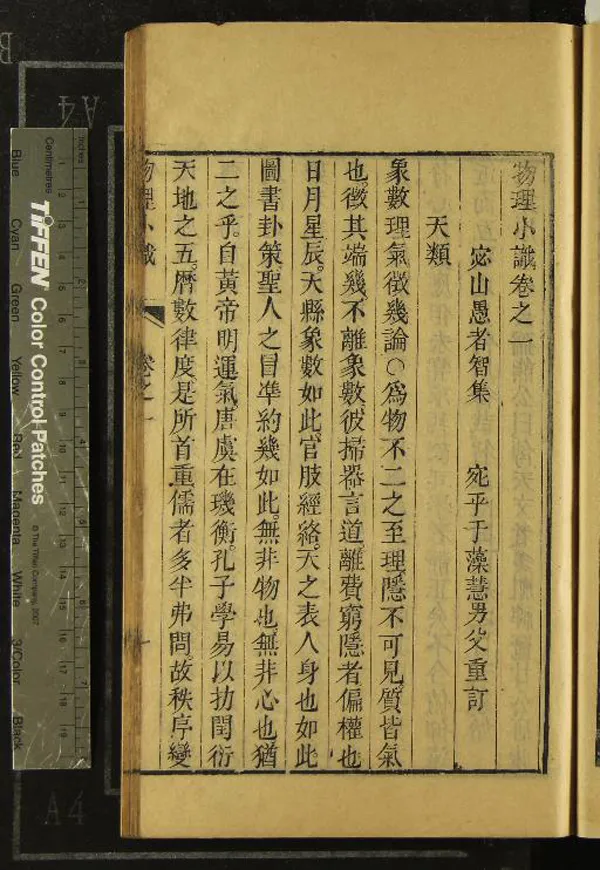 物理小識卷之一
宓山愚者智集　宛平于藻慧男父重訂
天類
象數理氣徵幾論○爲物不二之至理隱不可見質皆氣
也徵其端幾不離象數彼掃器言道離費窮隱者偏權也
日月星辰天縣象數如此官肢經絡天之表人身也如此
圖書卦策聖人之冒準約幾如此無非物也無非心也猶
二之乎自黃帝明運氣唐虞在璣衡孔子學易以扐閏衍
天地之五曆數律度是所首重儒者多半弗問故秩序變
物理小識 卷之一
Inches
Centimetres
TIFFEN Color Control Patches
© The Tiffen Company, 2007
Blue
Cyan
Green
Yellow
Red
Magenta
White
3/Color
Black
A4
A4
B